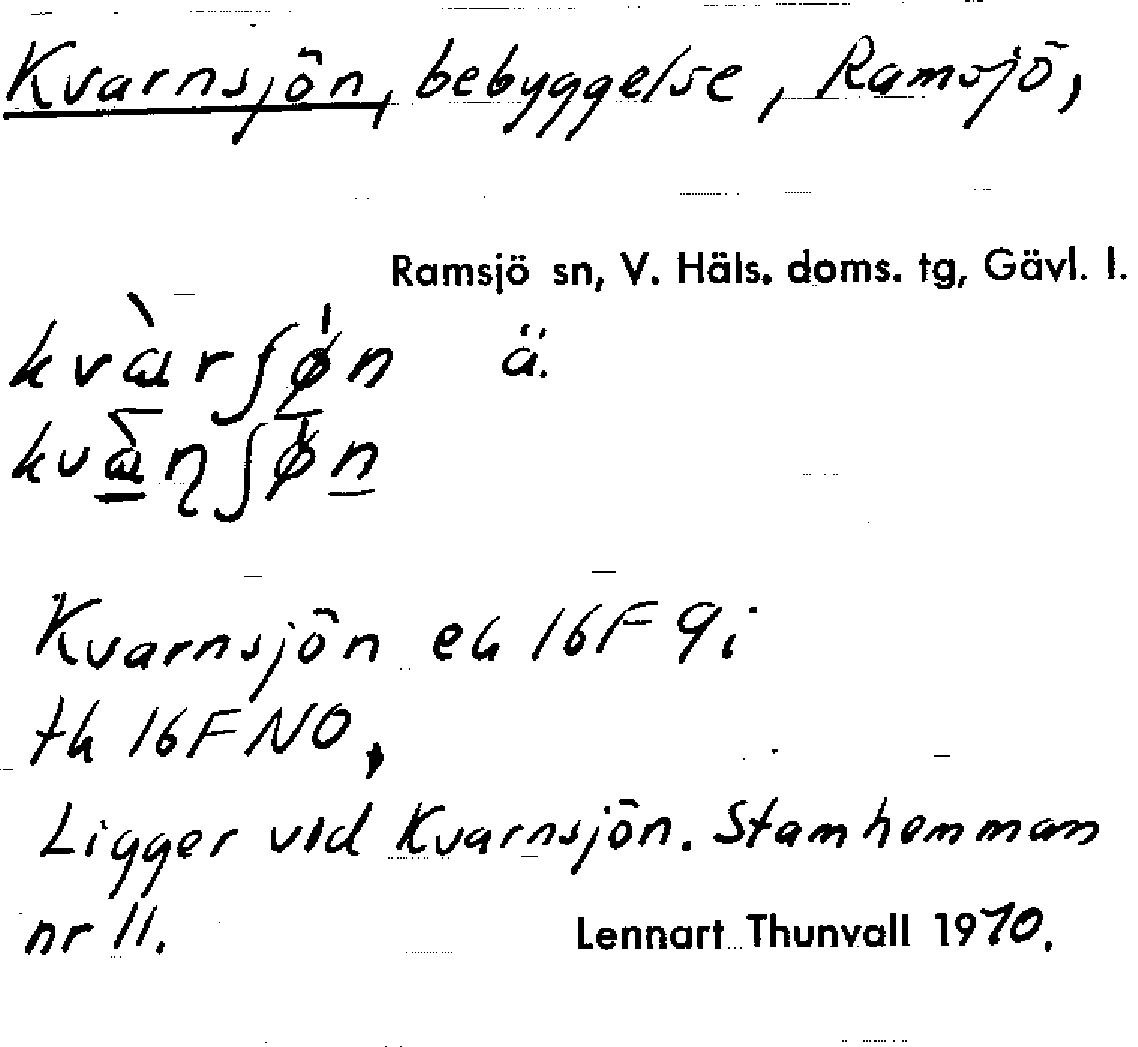 Kvarnsjön, bebyggelse, Ramsjö,
Ramsjö sn, V. Häls. doms. tg, Gävl. l.
kvàrʃø̍n ä.
kvàɳʃøn
Kvarnsjön ek 16F 9i
tk 16F NO,
Ligger vid Kvarnsjön. Stamhemman
nr 11. Lennart Thunvall 1970.